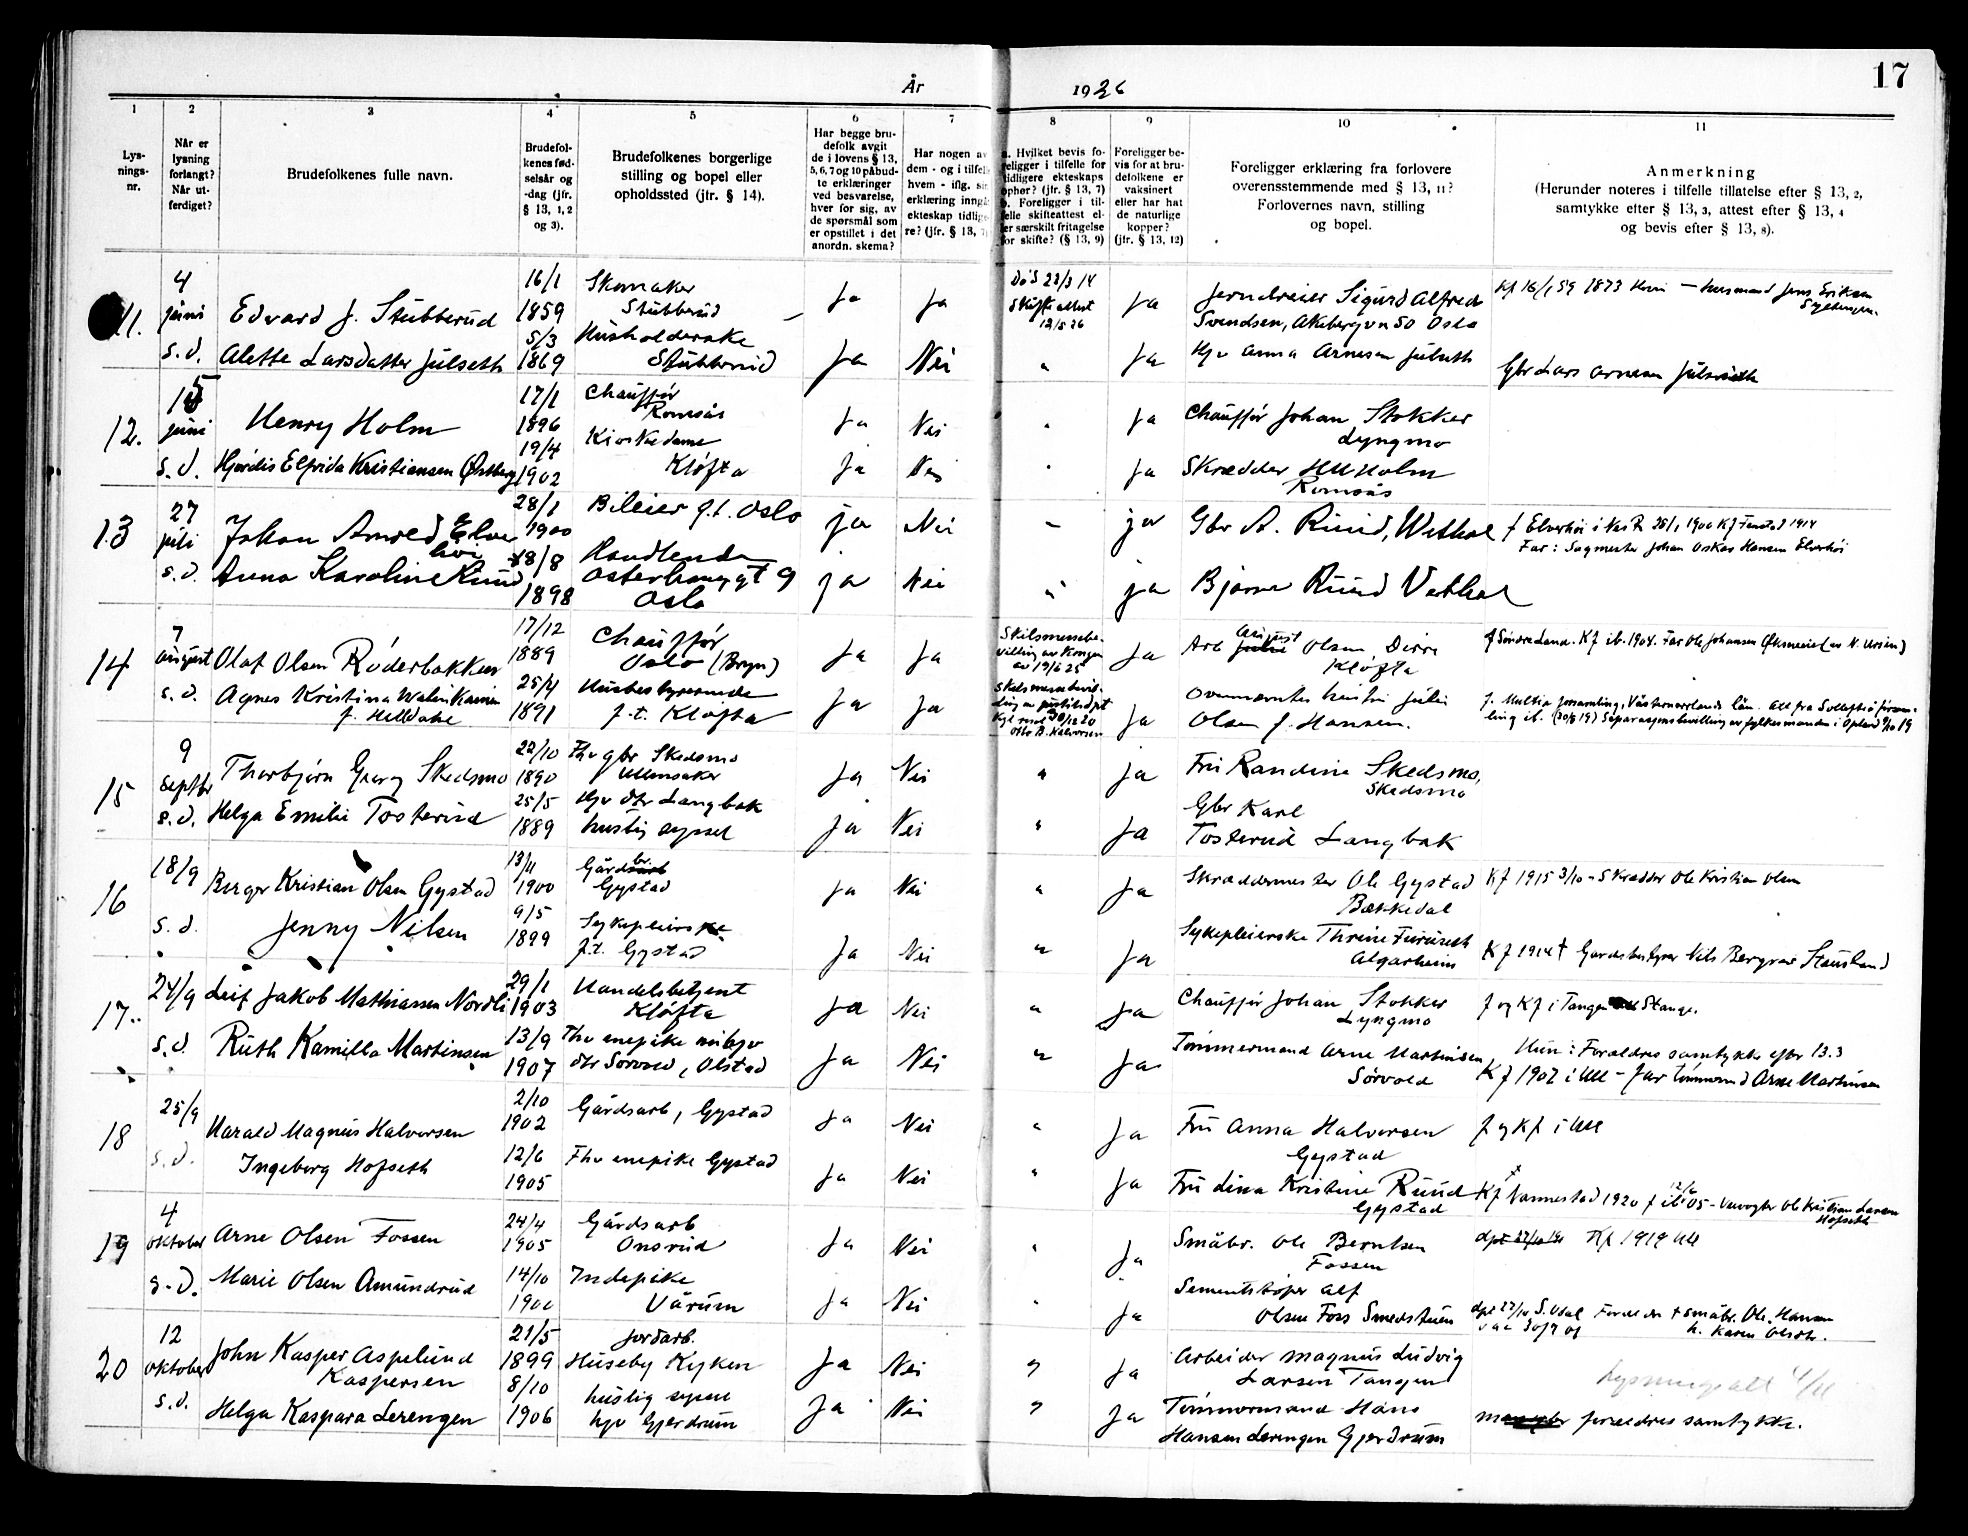 17
År 1926
1 2 3 4 5 6 7 8 9 10 11
Lys-
nings-
nr.
Når er
lysning
forlangt?
Når ut-
ferdiget?
Brudefolkenes fulle navn.
Brudefol-
kenes fød-
selsår og
-dag (jfr.
§ 13, 1, 2
og 3).
Brudefolkenes borgerlige
stilling og bopel eller
opholdssted (jfr. § 14).
Har begge bru-
defolk avgit
de i lovens § 13,
5, 6, 7 og 10 påbud-
te erklæringer
ved besvarelse,
hver for sig, av
de spørsmål som
er opstillet i det
anordn. skema?
Har nogen av
dem - og i tilfelle
hvem - iflg. sin
erklæring inngå
ekteskap tidlige-
re? (jfr. § 13,
a. Hvilket bevis fo-
religger i tilfelle for
tidligere ekteskaps
ophør? (jfr. § 13, 7)
b. Foreligger i til-
felle skifteattest el-
ler særskilt fritagelse
for skifte? (§ 13, 9)
Foreligger be-
vis for at bru-
defolkene er
vaksinert
eller har hat
de naturlige
kopper?
(jfr. § 13, 12)
Foreligger erklæring fra forlovere
overensstemmende med § 13, 11?
Forlovernes navn, stilling
og bopel.
Anmerkning
(Herunder noteres i tilfelle tillatelse efter § 13, 2,
samtykke efter § 13, 3, attest efter § 13, 4
og bevis efter § 13, 8).
11. 4 juni Edvard J. Stubberud 16/1 1859 Skomaker Stubberud Ja Ja Skifteattest 12/5 26 Ja Jerndreier Sigurd Alfred Svendsen, Akebergvn 50 Oslo Kf 16/1 59 1873
s.d. Alette Larsdatter Julseth 5/3 1869 Husholderske Stubberud Ja Nei " Ja Hjv Anna Arnesen Julseth Gbr Lars Arnesen Julseth
12. 15 juni Henry Holm 17/1 1896 Chauffør Romsås Ja Nei " Ja Chauffør Johan Stokker Lyngmo
s.d. Hjørdis Elfrida Kristiansen Østberg 19/4 1902 Kioskedame Kløfta Ja Nei " Ja Skrædder Holm Romsås
13 27 juli Johan Arved Elverhøi 28/1 1900 Bileier f.t. Oslo ja Nei - ja Gbr A. Ruud, Wethal f Elverhøi i Nes R 28/1 1900 Kf Fenstad 1914
Far: Sagmester Johan Oskar Hansen Elverhøi
s.d. Anna Karoline Ruud 18/8 1898 Handlende Osterhausgt 9 Oslo ja Nei " ja Bjarne Ruud Vethal
14 7 august Olaf Olsen Røderbakken 17/12 1889 Chauffør Oslo (Bryn) Ja Ja Skilsmissebevilling av Kongen av 19/6 25 Ja Arb August Olsen, Dirra Kløfta f Søndre Land. Kf ib. 1904. Far Ole Johansen
s.d. Agnes Kristina f. Helldahl 25/4 1891 Husbestyrerinde f.t. Kløfta Ja Ja Ja Ovennævntes hustru Julie Olsen f. Hansen.
15 9 septbr Thorbjørn Georg Skedsmo 22/10 1890 Fhv gbr Skedsmo Ullensaker Ja Nei " Ja Fru Randine Skedsmo, Skedsmo
s.d. Helga Emilie Tosterud 25/5 1889 Hjv dtr Langbak huslig syssel Ja Nei " Ja Gbr Karl Tosterud Langbak
16 18/9 Berger Kristian Olsen Gystad 13/11 1900 Gårdbr. Gystad Ja Nei " Ja Skræddermester Ole Gystad Bækkedal Kf 1915 3/10 - Skrædder Ole Kristian Olsen
s.d. Jenny Nilsen 9/5 1899 Sykepleierske f.t. Gystad Ja Nei " Ja Sykepleierske Thrine Furuseth Algarheim Kf 1914 Gardsbestyrer Nils Bergvar
17. 24/9 Leif Jakob Mathiassen Nordli 29/1 1903 Handelsbetjent Kløfta Ja Nei " Ja Chauffør Johan Stokker Lyngmo f og Kf i Tangen Stange.
s.d. Ruth Kamilla Martinsen 13/9 1907 Fhv enepike nu hjv dtr Sørvold, Olstad Ja Nei " Ja Tømmermand Arne Martinsen, Sørvold Hun: Forældres samtykke efter 13.3
Kf 1907 i Ull - far Tømmermand Arne Martinsen
18 25/9 Harald Magnus Halvorsen 2/10 1902 Gårdsarb, Gystad Ja Nei " Ja Fru Anna Halvorsen Gystad f og Kf i Ull
s.d. Ingeborg Hofseth 12/6 1905 Fhv enepike Gystad Ja Nei " Ja Fru Lina Kristine Ruud Gystad Kf Nannestad 1920 f ib 12/6 05 - Ole Kristian Larsen Hofseth
19 4 oktober Arne Olsen Fossen 24/4 1905 Gårdsarb Onsrud Ja Nei " Ja Småbr. Ole Berntsen Fossen Kf 1919 Ull
s.d. Marie Olsen Amundrud 14/10 1900 Indepike Vårum Ja Nei " Ja Sementstøper Alf Olsen Foss Smedstuen Foreldre + småbr. Ole Hansen h. Karen Olsdtr.
20 12 oktober John Kasper Aspelund Kaspersen 21/5 1899 Jordarb. Huseby Kyken Ja Nei " Ja Arbeider Magnus Ludvig Larsen Tangen
s.d. Helga Kaspara Lerengen 8/10 1906 huslig syssel hjv Gjerdrum Ja Nei " Ja Tømmermand Hans Hansen Lerengen Gjerdrum forældres samtykke.